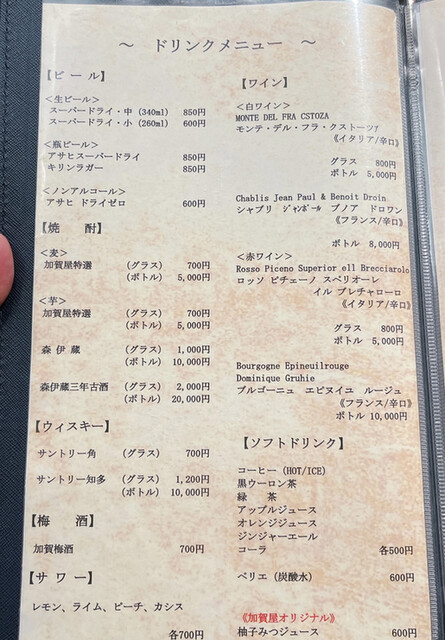 ～ ドリンクメニュー ～
【ビール】
＜生ビール＞
スーパードライ・中 (340ml) 850円
スーパードライ・小 (260ml) 600円
＜瓶ビール＞
アサヒスーパードライ 850円
キリンラガー 850円
＜ノンアルコール＞
アサヒ ドライゼロ 600円
【焼 酎】
＜麦＞
加賀屋特選 (グラス) 700円
(ボトル) 5,000円
＜芋＞
加賀屋特選 (グラス) 700円
(ボトル) 5,000円
森 伊 蔵 (グラス) 1,000円
(ボトル) 10,000円
森伊蔵三年古酒 (グラス) 2,000円
(ボトル) 20,000円
【ウィスキー】
サントリー角 (グラス) 700円
サントリー知多 (グラス) 1,200円
(ボトル) 10,000円
【梅 酒】
加賀梅酒 700円
【サ ワ ー】
レモン、ライム、ピーチ、カシス
各700円
【ワイン】
＜白ワイン＞
MONTE DEL FRA CSTOZA
モンテ・デル・フラ・クストーツァ
《イタリア/辛口》
グラス 800円
ボトル 5,000円
Chablis Jean Paul & Benoit Droin
シャブリ ジャンポール ブノア ドロワン
《フランス/辛口》
ボトル 8,000円
＜赤ワイン＞
Rosso Piceno Superior ell Brecciarolo
ロッソ ピチェーノ スペリオーレ
イル ブレチャローロ
《イタリア/辛口》
グラス 800円
ボトル 5,000円
Bourgogne Epineuilrouge
Dominique Gruhie
ブルゴーニュ エピヌイユ ルージュ
《フランス/辛口》
ボトル 10,000円
【ソフトドリンク】
コーヒー (HOT/ICE)
黒ウーロン茶
緑 茶
アップルジュース
オレンジジュース
ジンジャーエール
コーラ 各500円
ペリエ (炭酸水) 600円
《加賀屋オリジナル》
柚子みつジュース 600円